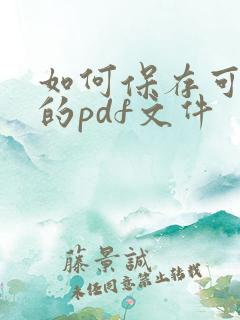 如何保存可
的pdf文件
藤景誠
未经同意禁止转载